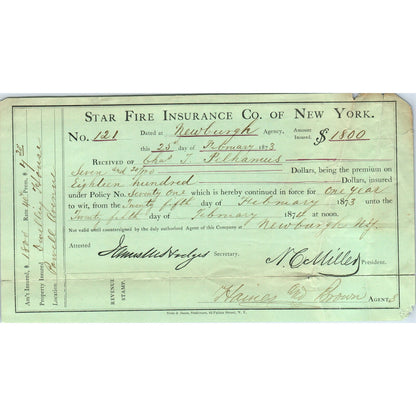 STAR FIRE INSURANCE CO. OF NEW YORK.
No. 121 Dated at Newburgh Agency, Amount Insured, $1800
this 25th day of February 1873
RECEIVED OF Chas T.
Seven and 20/100 Dollars, being the premium on
Eighteen hundred Dollars, insured
under Policy No. Seventy One which is hereby continued in force for One year
to wit, from the Twenty fifth day of February 1873 until the
Twenty fifth day of February 1874 at noon.
Not valid until countersigned by the duly authorized Agent of this Company at Newburgh N.Y.
Attested
James M Hodges Secretary. N. C. Miller President.
REVENUE STAMP.
Haines and Brown Agents
Am't Insured, $1800 Rate 40 Prem. $
Property Insured, Dwelling House
Location, Powell Avenue